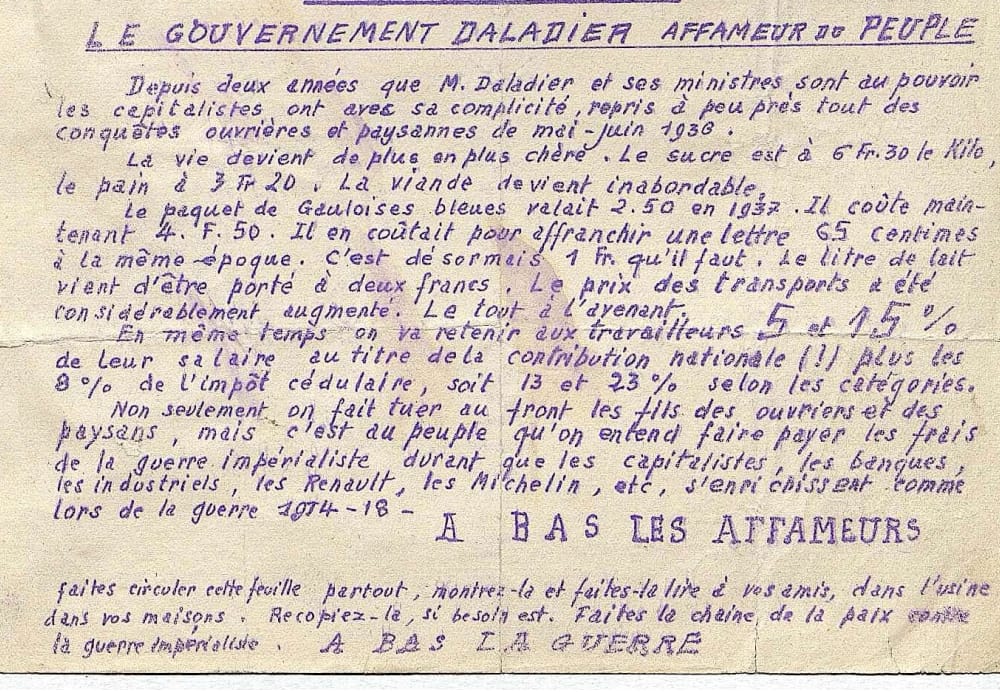 LE GOUVERNEMENT DALADIER AFFAMEUR DU PEUPLE
Depuis deux années que M. Daladier et ses ministres sont au pouvoir
les capitalistes ont avec sa complicité, repris à peu près tout des
conquêtes ouvrières et paysannes de mai-juin 1936.
La vie devient de plus en plus chère. Le sucre est à 6 Fr.30 le Kilo,
le pain à 3 Fr 20. La viande devient inabordable.
Le paquet de Gauloises bleues valait 2.50 en 1937. Il coûte main-
tenant 4. F. 50. Il en coûtait pour affranchir une lettre 65 centimes
à la même époque. C'est désormais 1 Fr. qu'il faut. Le litre de lait
vient d'être porté à deux francs. Le prix des transports a été
considérablement augmenté. Le tout à l'avenant.
En même temps on va retenir aux travailleurs 5 et 15 %
de leur salaire au titre de la contribution nationale (!) plus les
8 % de l'impôt cédulaire, soit 13 et 23 % selon les catégories.
Non seulement on fait tuer au front les fils des ouvriers et des
paysans, mais c'est au peuple qu'on entend faire payer les frais
de la guerre impérialiste durant que les capitalistes, les banques,
les industriels, les Renault, les Michelin, etc, s'enrichissent comme
lors de la guerre 1914-18 -
A BAS LES AFFAMEURS
faites circuler cette feuille partout, montrez-la et faites-la lire à vos amis, dans l'usine
dans vos maisons. Recopiez-la, si besoin est. Faites la chaine de la paix contre
la guerre impérialiste. A BAS LA GUERRE